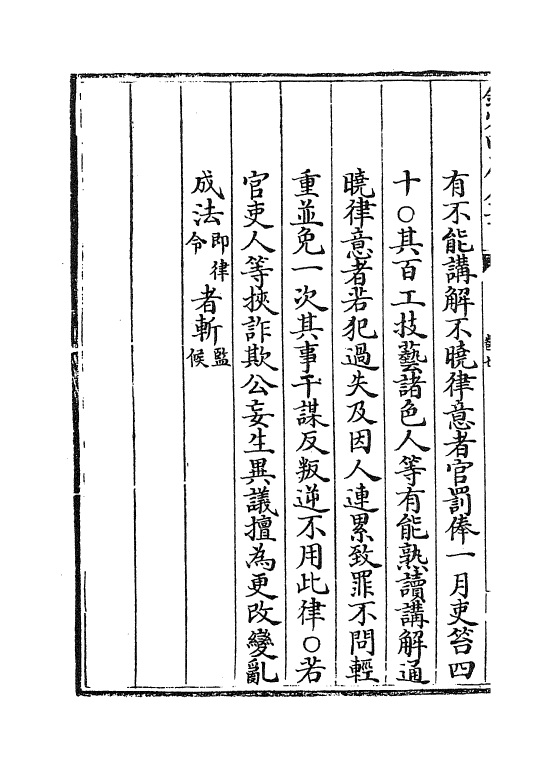 有不能講解不曉律意者官罰俸一月吏笞四
十○其百工技藝諸色人等有能熟讀講解通
曉律意者若犯過失及因人連累致罪不問輕
重並免一次其事干謀反叛逆不用此律○若
官吏人等挾詐欺公妄生異議擅為更改變亂
成法即律令者斬監候